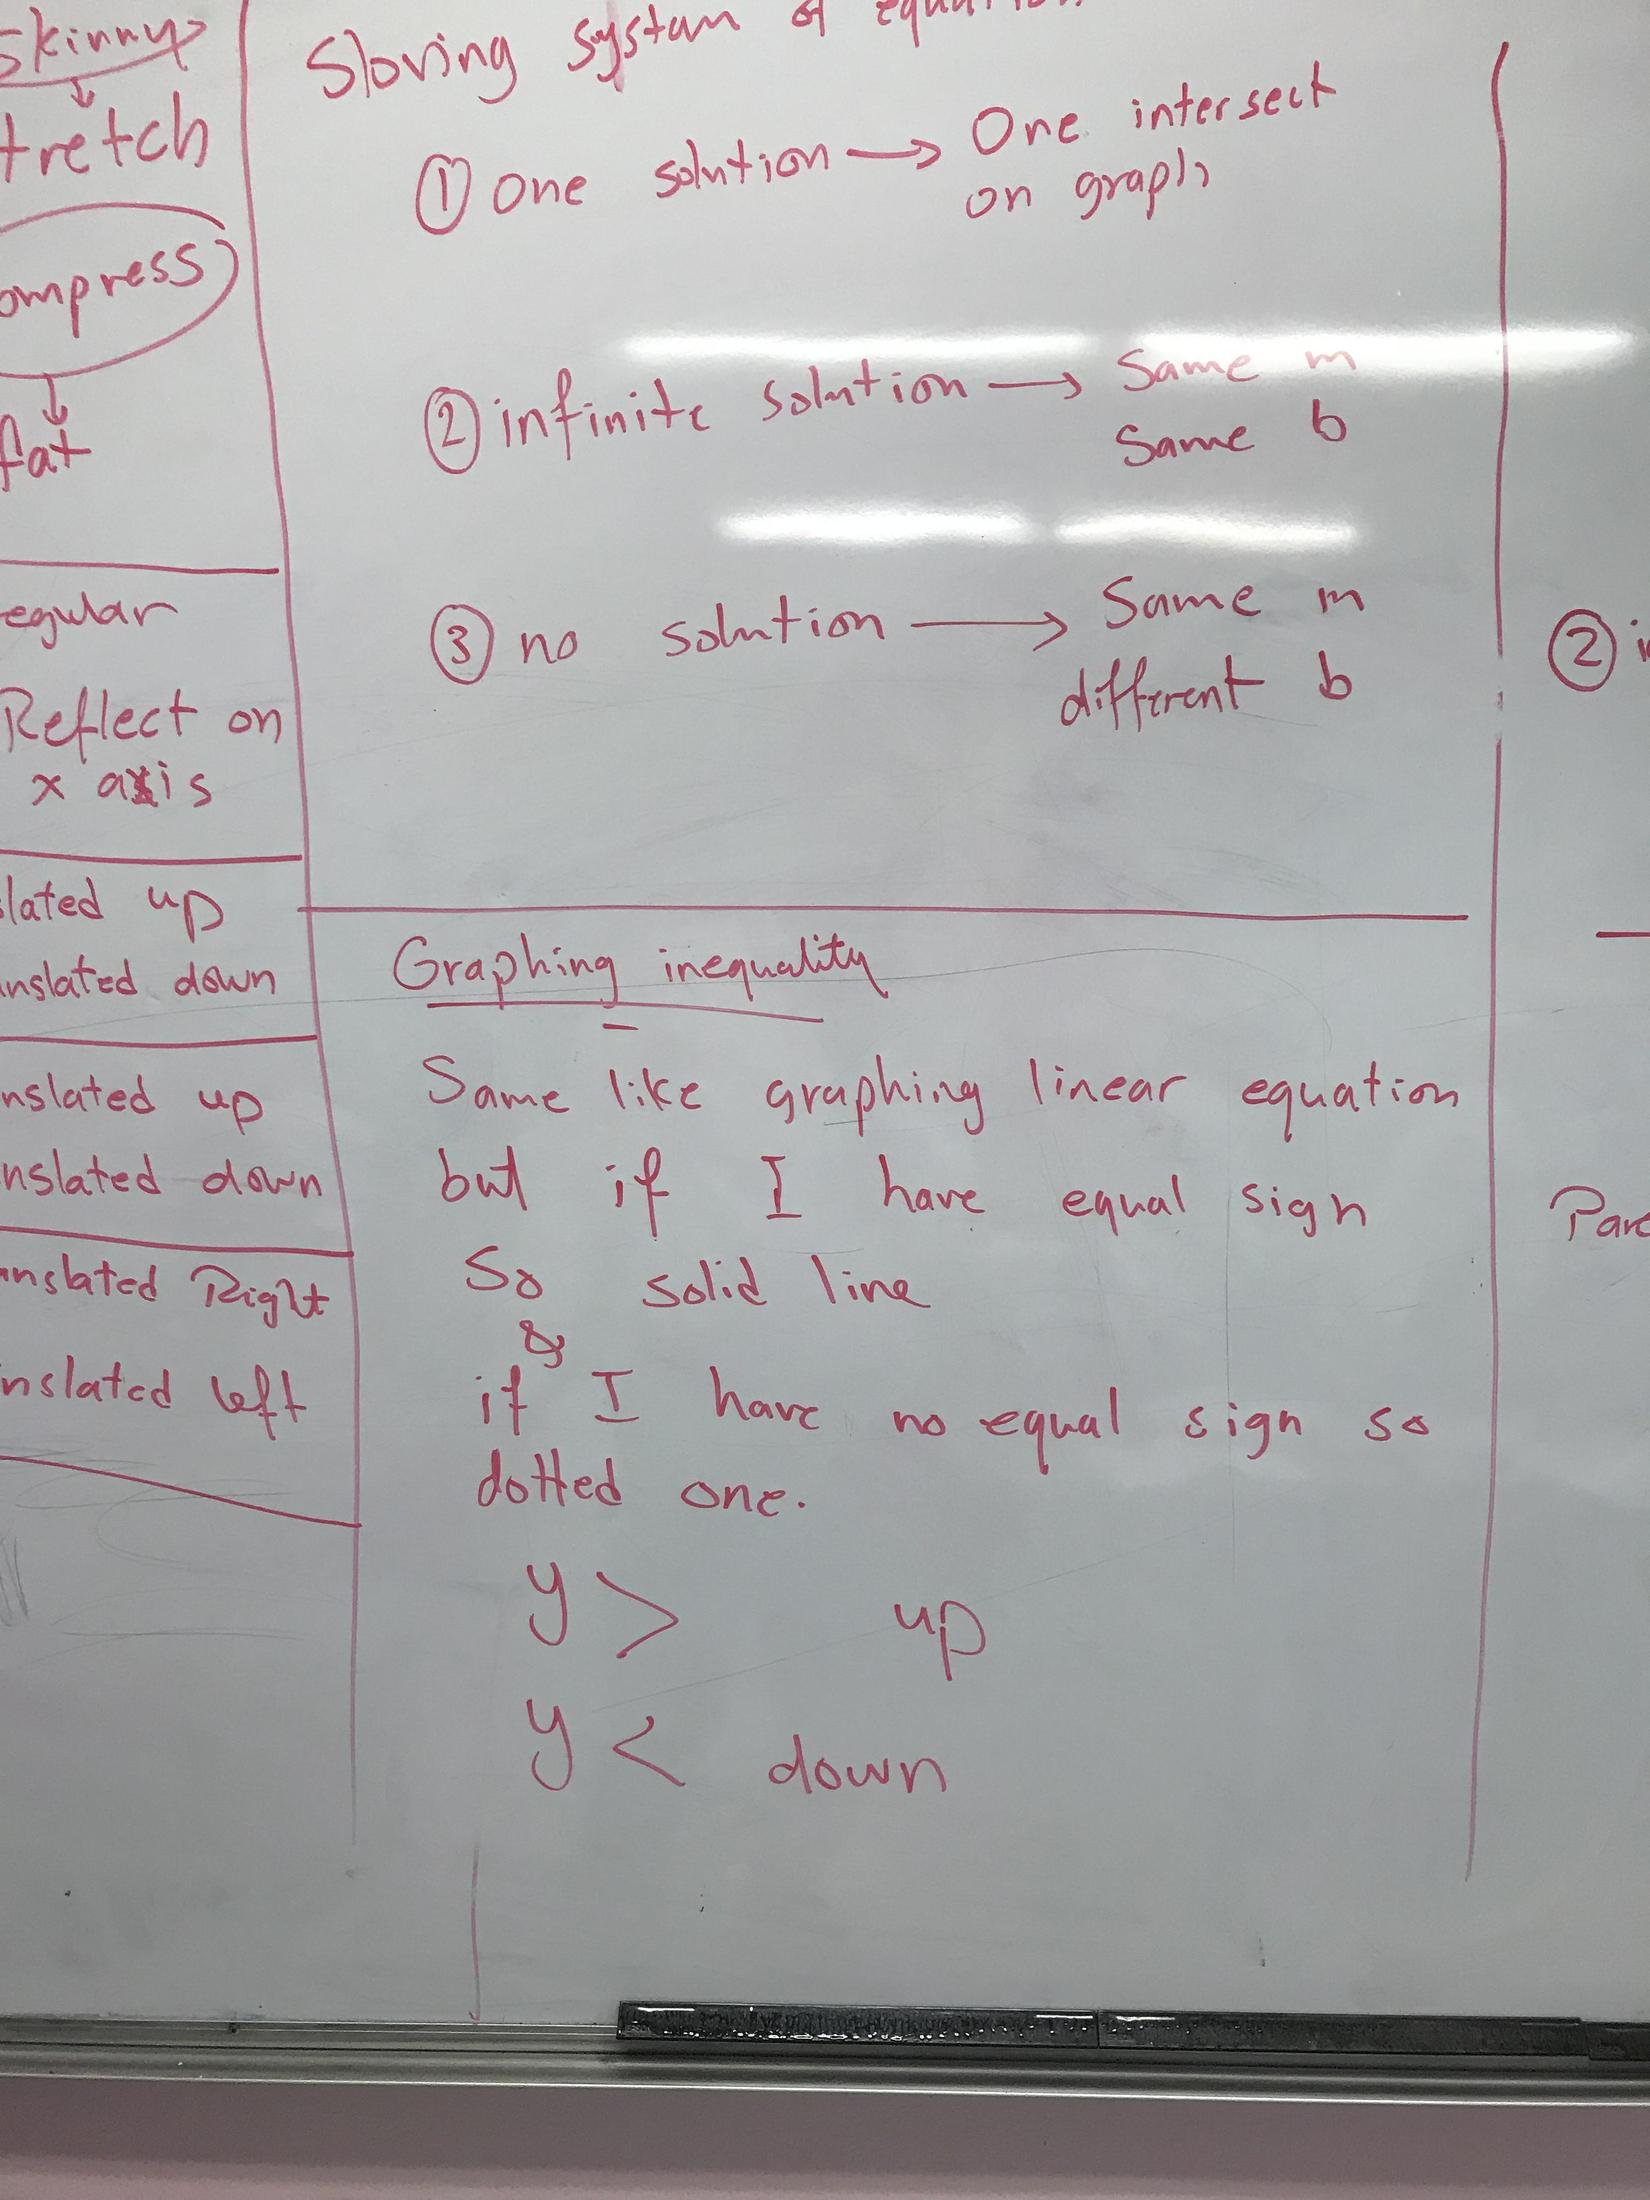 skinny
tretch
ompress
fat
egular
Reflect on
x axis
lated up
nslated down
nslated up
nslated down
anslated Right
nslated left
Sloving system of equation
① one solution → One intersect
on graph
② infinite solution → Same m
Same b
③ no solution → Same m
different b
Graphing inequality
Same like graphing linear equation
but if I have equal sign
So solid line
&
if I have no equal sign so
dotted one.
y > up
y < down
② i
Par